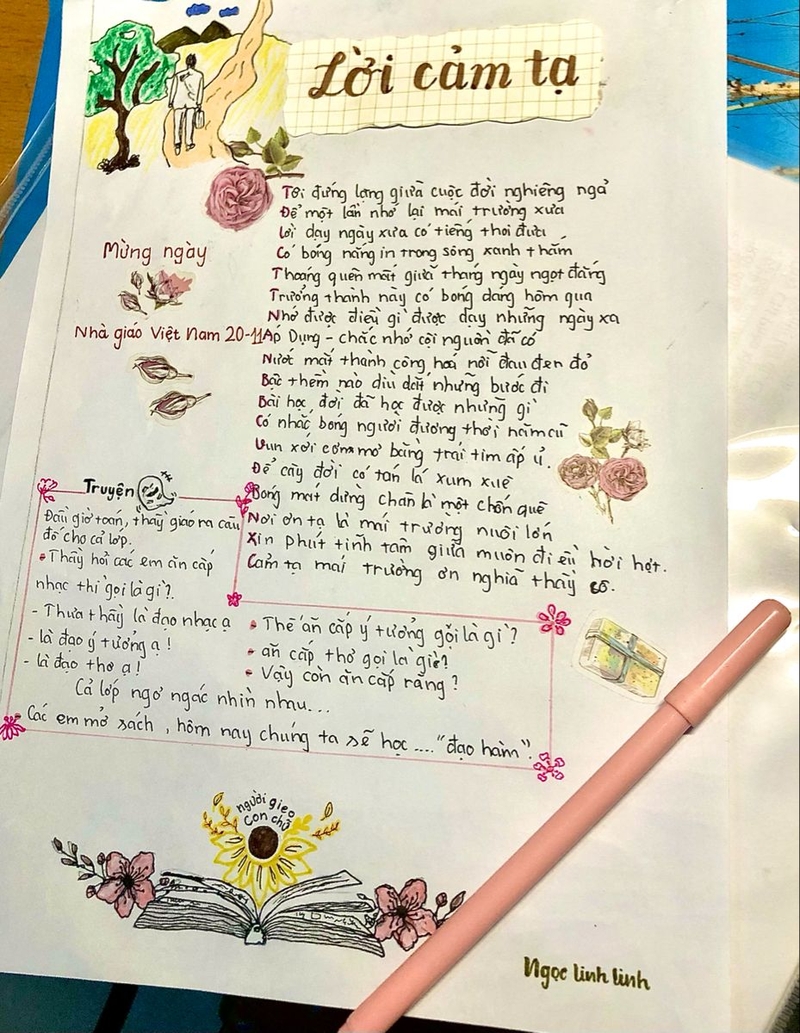 Lời cảm tạ
Tôi đứng lặng giữa cuộc đời nghiêng ngả
Để một lần nhớ lại mái trường xưa
Lời dạy ngày xưa có tiếng thoi đưa
Có bóng nắng in trong sông xanh thắm
Thoáng quên mất giữa tháng ngày ngọt đắng
Trưởng thành này có bóng dáng hôm qua
Nhớ được điều gì được dạy những ngày xa
Áp Dụng - chắc nhớ cội nguồn đã có
Nước mắt thành công hoá nỗi đau đen đỏ
Bậc thềm nào dìu dắt những bước đi
Bài học đời đã học được những gì
Có nhắc bóng người đương thời năm cũ
Vun xới cơm mơ bằng trái tim ấp ủ.
Để cây đời có tán lá xum xuê
Bóng mát dừng chân là một chốn quê
Nơi ơn tạ là mái trường nuôi lớn
Xin phút tĩnh tâm giữa muôn điều hời hợt.
Cảm tạ mái trường ơn nghĩa thầy cô.
Mừng ngày
Nhà giáo Việt Nam 20-11
Truyện
Đầu giờ toán, thầy giáo ra câu
đố cho cả lớp.
• Thầy hỏi các em ăn cắp
nhạc thì gọi là gì?
- Thưa thầy là đạo nhạc ạ
• Thế ăn cắp ý tưởng gọi là gì?
- là đạo ý tưởng ạ!
• ăn cắp thơ gọi là gì?
- là đạo thơ ạ!
• Vậy còn ăn cắp răng?
Cả lớp ngơ ngác nhìn nhau...
- Các em mở sách, hôm nay chúng ta sẽ học ...."đạo hàm".
người gieo
con chữ
Ngọc linh linh